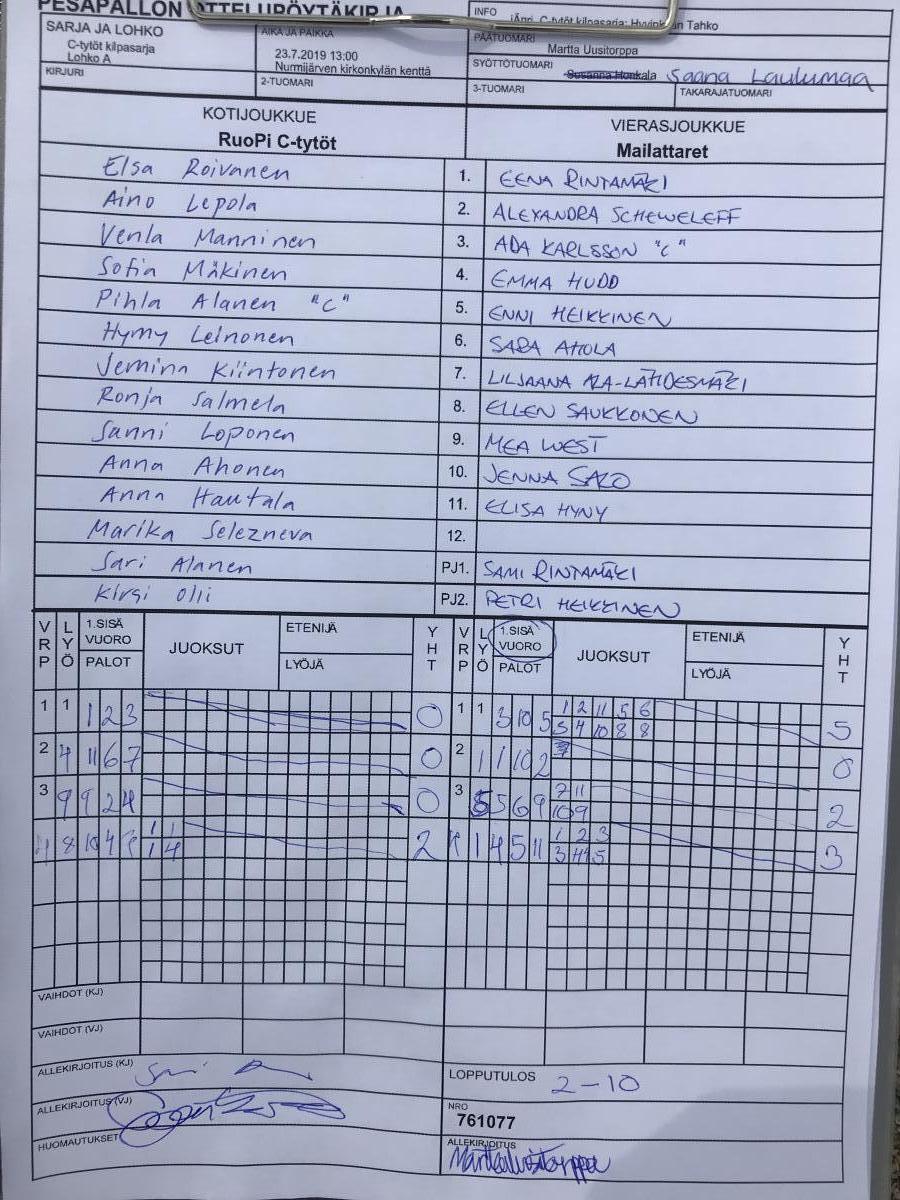 PESÄPALLON OTTELUPÖYTÄKIRJA
INFO
C-tytöt kilpasarja: Hyvinkään Tahko
SARJA JA LOHKO
C-tytöt kilpasarja
Lohko A
AIKA JA PAIKKA
23.7.2019 13:00
Nurmijärven kirkonkylän kenttä
PÄÄTUOMARI
Martta Uusitorppa
SYÖTTÖTUOMARI
Susanna Honkala Saana Laulumaa
KIRJURI
2-TUOMARI
3-TUOMARI
TAKARAJATUOMARI
KOTIJOUKKUE
RuoPi C-tytöt
VIERASJOUKKUE
Mailattaret
Elsa Roivanen 1. EENA RINTAMÄKI
Aino Lepola 2. ALEXANDRA SCHEWELEFF
Venla Manninen 3. ADA KARLSSON "C"
Sofia Mäkinen 4. EMMA HUDD
Pihla Alanen "C" 5. ENNI HEIKKINEN
Hymy Leinonen 6. SARA AHOLA
Jemina Kiintonen 7. LILJAANA ALA-LAHDESMÄKI
Ronja Salmela 8. ELLEN SAUKKONEN
Sanni Loponen 9. MEA WEST
Anna Ahonen 10. JENNA SALO
Anna Hautala 11. ELISA HYNY
Marika Selezneva 12.
Sari Alanen PJ1. SAMI RINTAMÄKI
Kirsi Olli PJ2. PETRI HEIKKINEN
VRP LYÖ 1.SISÄ VUORO PALOT JUOKSUT ETENIJÄ LYÖJÄ YHT VRP LYÖ 1.SISÄ VUORO PALOT JUOKSUT ETENIJÄ LYÖJÄ YHT
1 1 1 2 3 0 1 1 3 10 5 1 2 11 5 6 5
3 4 10 8 8
2 4 11 6 7 0 2 1 1 10 2 0
3 9 9 2 4 0 3 5 5 6 9 7 11 2
10 9
4 8 10 4 1 1 2 1 4 5 11 1 2 3 3
1 4 3 4 5
VAIHDOT (KJ)
VAIHDOT (VJ)
ALLEKIRJOITUS (KJ)
LOPPUTULOS 2-10
ALLEKIRJOITUS (VJ)
NRO
761077
HUOMAUTUKSET
ALLEKIRJOITUS
Martta Uusitorppa